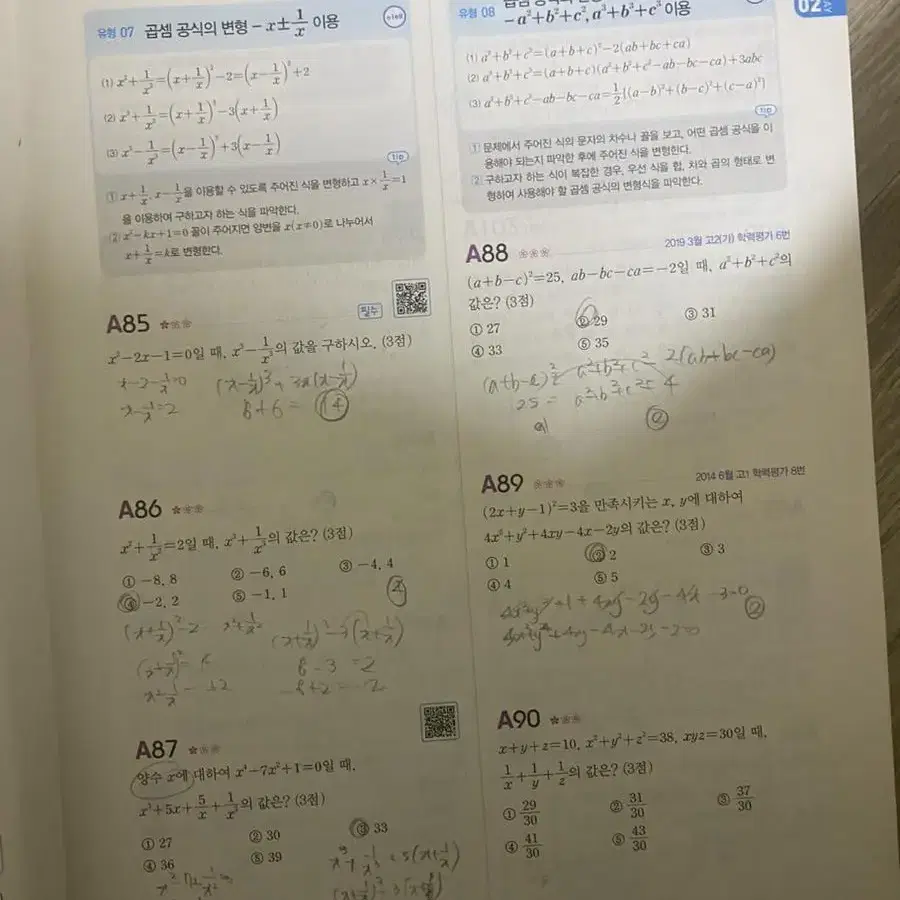 유형 07 곱셈 공식의 변형 - x±1/x 이용
(1) x²+1/x²=(x+1/x)²-2=(x-1/x)²+2
(2) x³+1/x³=(x+1/x)³-3(x+1/x)
(3) x³-1/x³=(x-1/x)³+3(x-1/x)
tip
① x+1/x, x-1/x을 이용할 수 있도록 주어진 식을 변형하고 x×1/x=1
을 이용하여 구하고자 하는 식을 파악한다.
② x²-kx+1=0 꼴이 주어지면 양변을 x(x≠0)로 나누어서
x+1/x=k로 변형한다.
A85
필수
x²-2x-1=0일 때, x³-1/x³의 값을 구하시오. (3점)
x-2-1/x=0
x-1/x=2
8+6= 14
A86
x²+1/x²=2일 때, x³+1/x³의 값은? (3점)
① -8, 8 ② -6, 6 ③ -4, 4
④ -2, 2 ⑤ -1, 1
(x+1/x)²-2
(x+1/x)³-3(x+1/x)
8-3 =2
A87
양수 x에 대하여 x⁴-7x²+1=0일 때,
x³+5x+5/x+1/x³의 값은? (3점)
① 27 ② 30 ③ 33
④ 36 ⑤ 39
유형 08
-a²+b²+c², a³+b³+c³ 이용
02
(1) a²+b²+c²=(a+b+c)²-2(ab+bc+ca)
(2) a³+b³+c³=(a+b+c)(a²+b²+c²-ab-bc-ca)+3abc
(3) a²+b²+c²-ab-bc-ca=1/2{(a-b)²+(b-c)²+(c-a)²}
tip
① 문제에서 주어진 식의 문자의 차수나 꼴을 보고, 어떤 곱셈 공식을 이
용해야 되는지 파악한 후에 주어진 식을 변형한다.
② 구하고자 하는 식이 복잡한 경우, 우선 식을 합, 차와 곱의 형태로 변
형하여 사용해야 할 곱셈 공식의 변형식을 파악한다.
A88
2019 3월 고2(가) 학력평가 6번
(a+b-c)²=25, ab-bc-ca=-2일 때, a²+b²+c²의
값은? (3점)
① 27 ② 29 ③ 31
④ 33 ⑤ 35
(a+b-c)²= a²+b²+c² 2(ab+bc-ca)
25= a²+b²+c² 4
②
A89
2014 6월 고1 학력평가 8번
(2x+y-1)²=3을 만족시키는 x, y에 대하여
4x²+y²+4xy-4x-2y의 값은? (3점)
① 1 ② 2 ③ 3
④ 4 ⑤ 5
4x²+y²+1+4xy-2y-4x-3=0
②
4x²+y²+4xy-4x-2y-2=0
A90
x+y+z=10, x²+y²+z²=38, xyz=30일 때,
1/x+1/y+1/z의 값은? (3점)
① 29/30 ② 31/30 ③ 37/30
④ 41/30 ⑤ 43/30